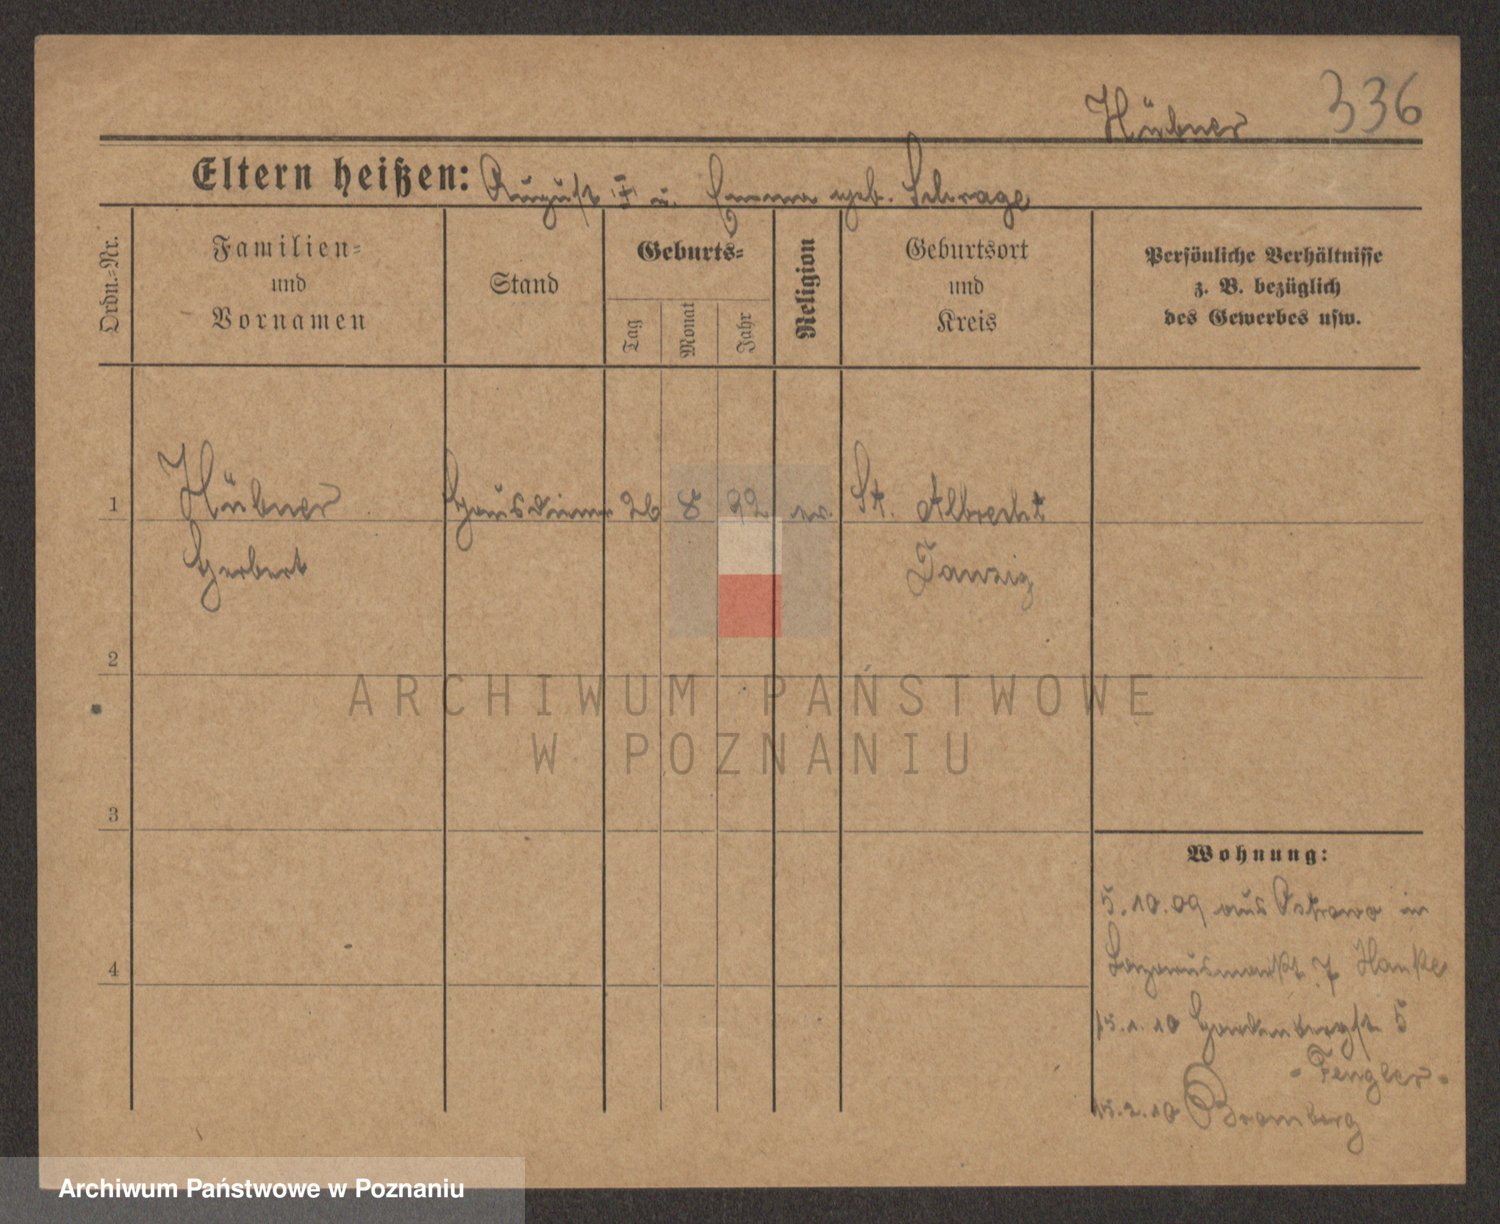 Hübner 336
Eltern heißen: August u. Emma geb. Schrage
Ordn.=Nr.
Familien=
und
Vornamen
Stand
Geburts=
Tag
Monat
Jahr
Religion
Geburtsort
und
Kreis
Persönliche Verhältnisse
z. B. bezüglich
des Gewerbes usw.
1 Hübner Hausdiener 26 8 92 ev. St. Albrecht
Herbert Danzig
2
ARCHIWUM PAŃSTWOWE
W POZNANIU
3
Wohnung:
5.10.09 aus Ostrowo in
4
Lazarusmarkt 7 Hanke
15.1.10 Hardenbergst. 5
- Fengler -
15.2.10 Bromberg
Archiwum Państwowe w Poznaniu